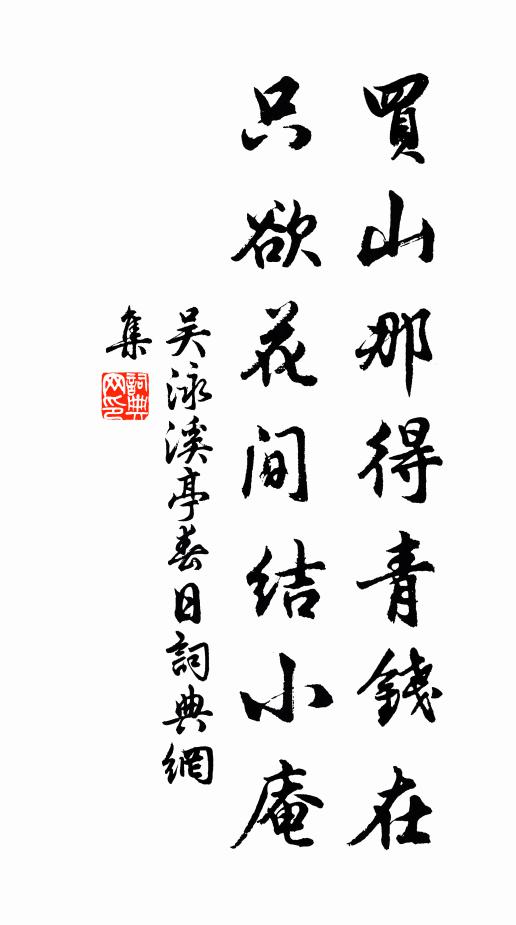 買山那得青錢在
只欲花間結小庵
吴泳溪亭春日詞典網
集
詞典
网印